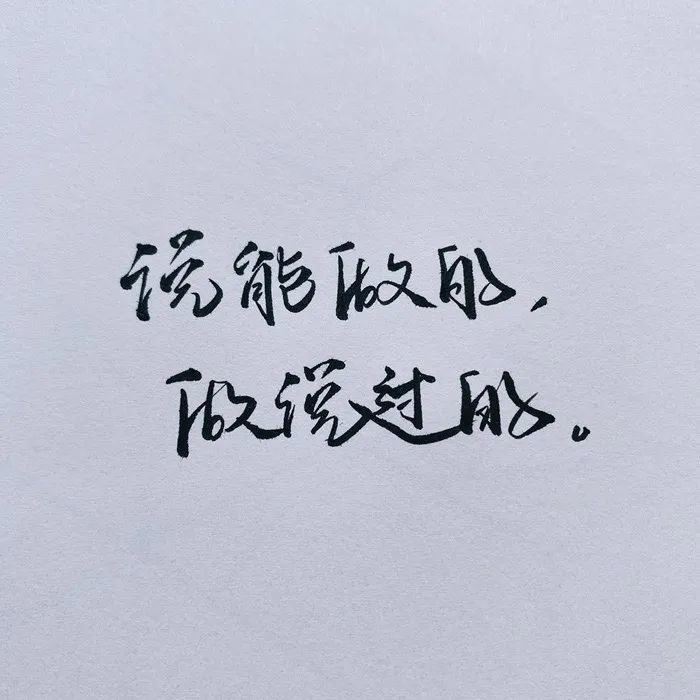 说能做的，
做说过的。